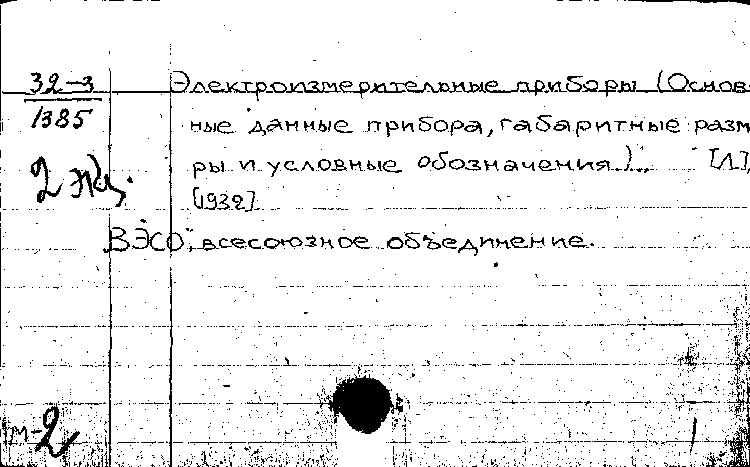 32-3
1385
2 экз.
Электроизмерительные приборы (Основ-
ные данные прибора, габаритные разм
ры и условные обозначения).. [Л],
[1932]
ВЭСО, всесоюзное объединение.
м-2